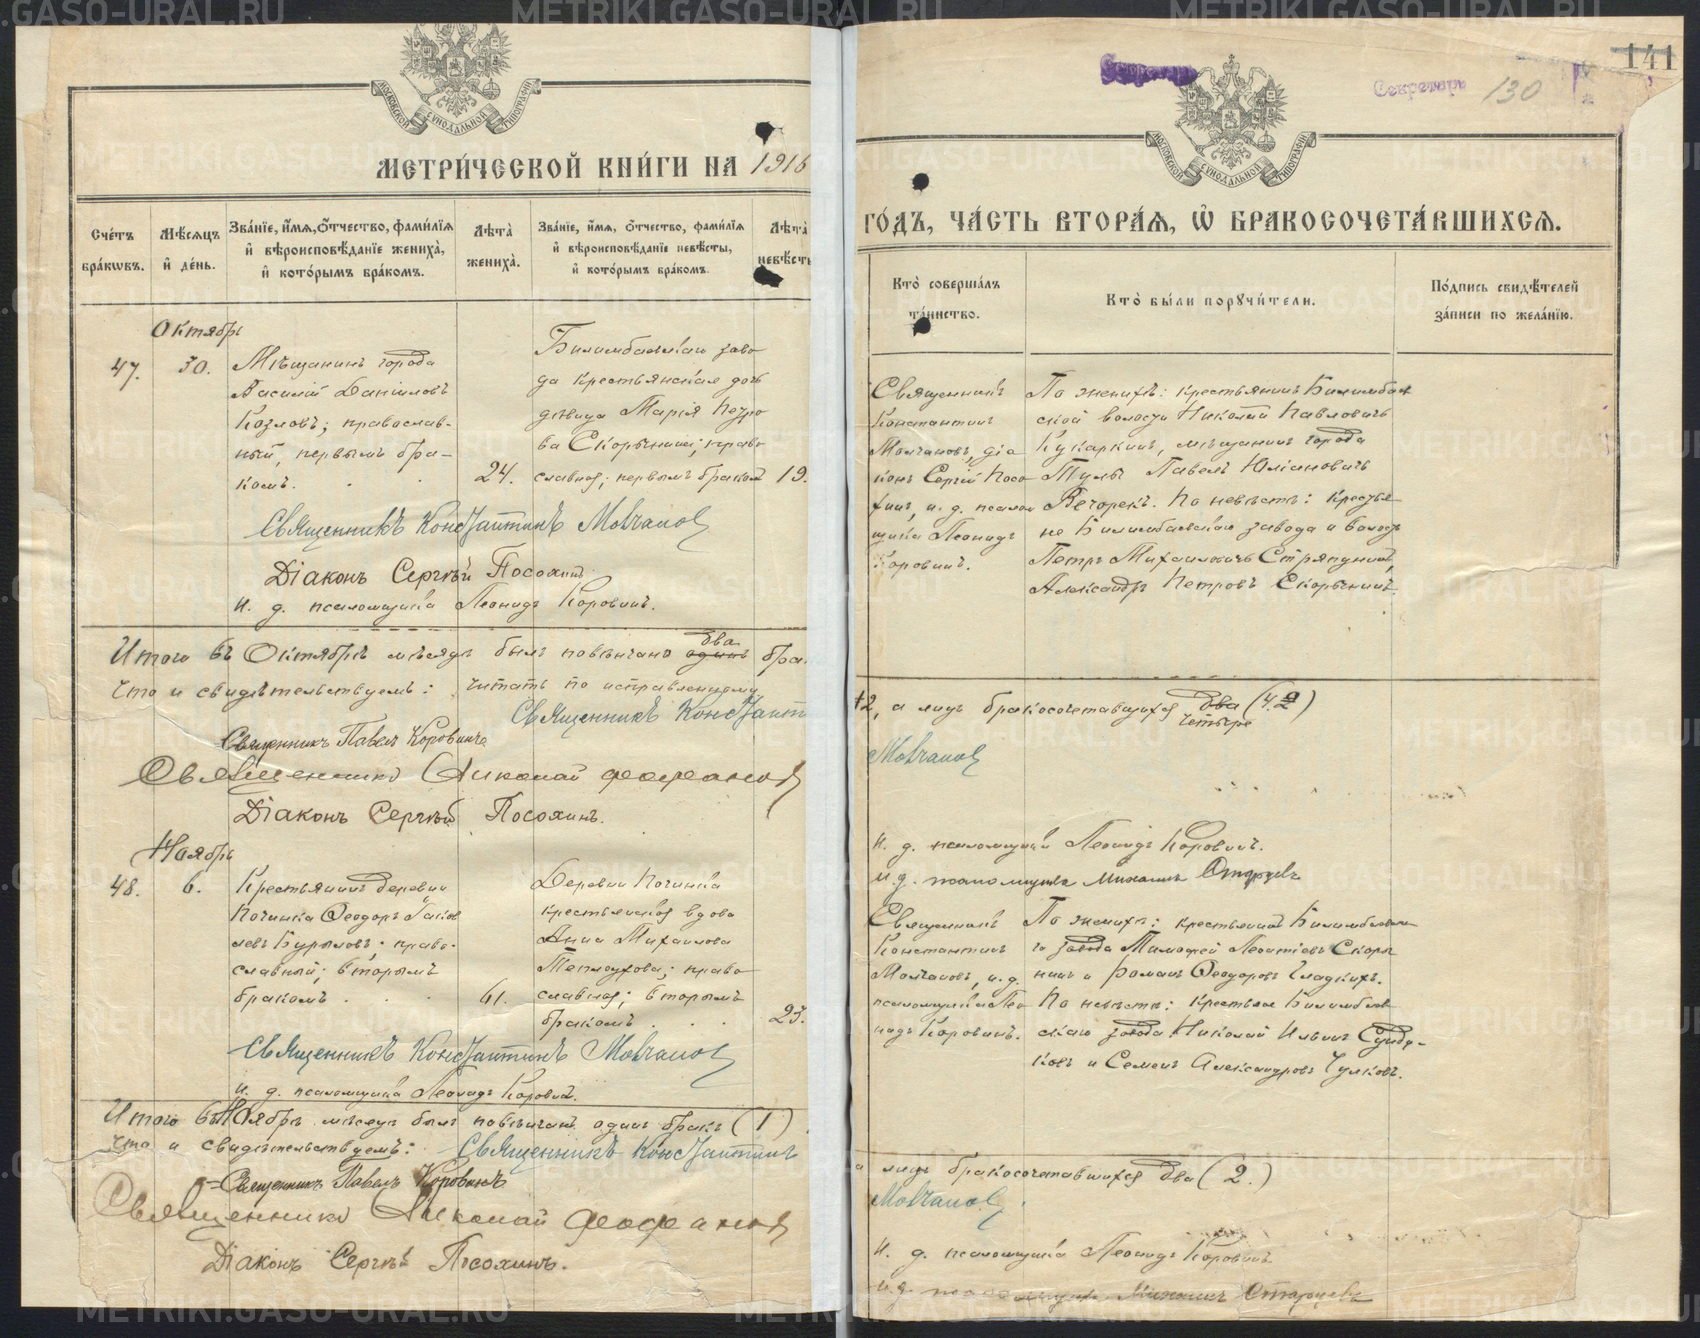 МЕТРИ́ЧЕСКОЙ КНИ́ГИ НА 1916
Сче́тъ бра́кωвъ.
Мѣ́сяцъ и́ де́нь.
Зва́нїе, и́мя, ѻ́тчество, фами́лїя и́ вѣроисповѣ́данїе жениха̀, и́ кото́рымъ бра́комъ.
Лѣта̀ жениха̀.
Зва́нїе, и́мя, ѻ́тчество, фами́лїя и́ вѣроисповѣ́данїе невѣ́сты, и́ кото́рымъ бра́комъ.
Лѣта̀ невѣ́сты
Октябрь
47.
30.
Мѣщанинъ города
Василій Даніиловъ
Козловъ; православ-
ный, первымъ бра-
комъ.
24.
Билимбаевскаго заво
да крестьянская дочь
дѣвица Марія Петро
ва Скорынина; право
славная; первымъ бракомъ
19.
Священникъ Константинъ Молчановъ
Діаконъ Сергѣй Посохинъ
И. д. псаломщика Леонидъ Коровинъ.
Итого въ Октябрѣ мѣсяцѣ былъ повѣнчано одинъ два бра.
Что и свидѣтельствуемъ: читать по исправленному
Священникъ Констант
Священникъ Павелъ Коровинъ
Священникъ Николай
Діаконъ Сергѣй Посохинъ.
Ноябрь
48.
6.
Крестьянинъ деревни
Починка Ѳеодоръ Іаков
левъ Бурыловъ; право-
славный; вторымъ
бракомъ
61.
Деревни Починка
крестьянская вдова
Анна Михаилова
Теплоухова; право
славная; вторымъ
бракомъ
23.
Священникъ Константинъ Молчановъ
И. д. псаломщика Леонидъ Коровинъ.
Итого въ Ноябрѣ мѣсяцѣ былъ повѣнчанъ одинъ бракъ (1)
Что и свидѣтельствуемъ: Священникъ Константинъ
Священникъ Павелъ Коровинъ
Священникъ Николай
Діаконъ Сергѣй Посохинъ.
141
Секретарь 130
ГО́ДЪ, ЧА́СТЬ ВТОРА́Я, Ѽ БРАКОСОЧЕТА́ВШИХСЯ.
Кто̀ соверша́лъ та́инство.
Кто̀ бы́ли порꙋчи́тели.
По́дпись свидѣ́телей за́писи по жела́нїю.
Священникъ
Константинъ
Молчановъ, діа
конъ Сергій Посо
хинъ, и. д. псалом
щика Леонидъ
Коровинъ.
По женихѣ: крестьянинъ Билимбаев
ской волости Николай Павловичъ
Кукаркинъ, мѣщанинъ города
Тулы Павелъ Юліановичъ
Вечорекъ. По невѣстѣ: крестья
не Билимбаевскаго завода и волости
Петръ Михаиловичъ Стряпунинъ,
Александръ Петровъ Скорынинъ.
2, а лицъ бракосочетавшихся два четыре (4)
Молчановъ
И. д. псаломщика Леонидъ Коровинъ.
И. д. псаломщика Михаилъ Старцевъ
Священникъ
Константинъ
Молчановъ, и. д.
псаломщика Лео
нидъ Коровинъ.
По женихѣ: крестьяне Билимбаевска
го завода Тимофей Леонтіевъ Скоры
нинъ и Романъ Ѳеодоровъ Гладкихъ.
По невѣстѣ: крестьяне Билимбаев
скаго завода Николай Ильинъ Сунду-
ковъ и Семенъ Александровъ Чулковъ.
а лицъ бракосочетавшихся два (2.)
Молчановъ.
И. д. псаломщика Леонидъ Коровинъ
И. д. псаломщика Михаилъ Старцевъ
METRIKI.GASO-URAL.RU